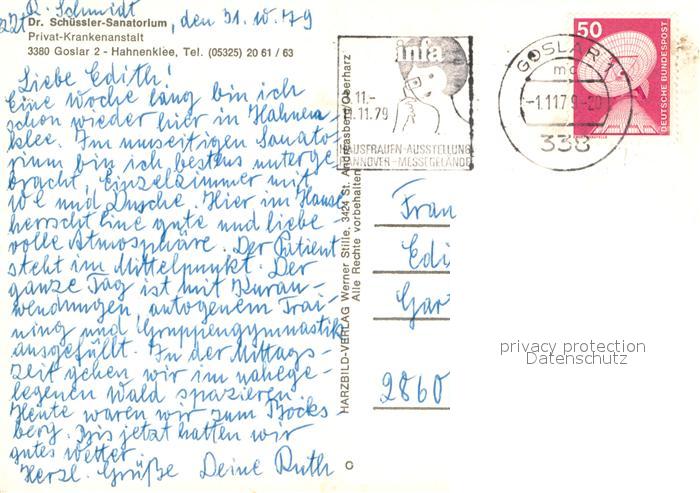 R. Schmidt
zZt
Dr. Schüssler-Sanatorium, den 31.10.79
Privat-Krankenanstalt
3380 Goslar 2 - Hahnenklee, Tel. (05325) 20 61 / 63
Liebe Edith!
Eine Woche lang bin ich
schon wieder hier in Hahnen-
klee. Im umseitigen Sanato-
rium bin ich bestens unterge-
bracht, Einzelzimmer mit
WC und Dusche. Hier im Hause
herrscht eine gute und liebe-
volle Atmosphäre. Der Patient
steht im Mittelpunkt. Der
ganze Tag ist mit Kuran-
wendungen, autogenem Trai-
ning und Gruppengymnastik
ausgefüllt. In der Mittags-
zeit gehen wir im nahege-
legenen Wald spazieren.
Heute waren wir zum Bocks-
berg. Bis jetzt hatten wir
gutes Wetter.
Herzl. Grüße Deine Ruth
HARZBILD-VERLAG Werner Stille, 3424 St. Andreasberg/Oberharz
Alle Rechte vorbehalten
infa
11.-
.11.79
AUSFRAUEN-AUSSTELLUNG
ANNOVER-MESSEGELÄNDE
GOSLAR 1
mc
-1.11.79-20
338
50
DEUTSCHE BUNDESPOST
Frau
Edi
Gar
2860
privacy protection
Datenschutz